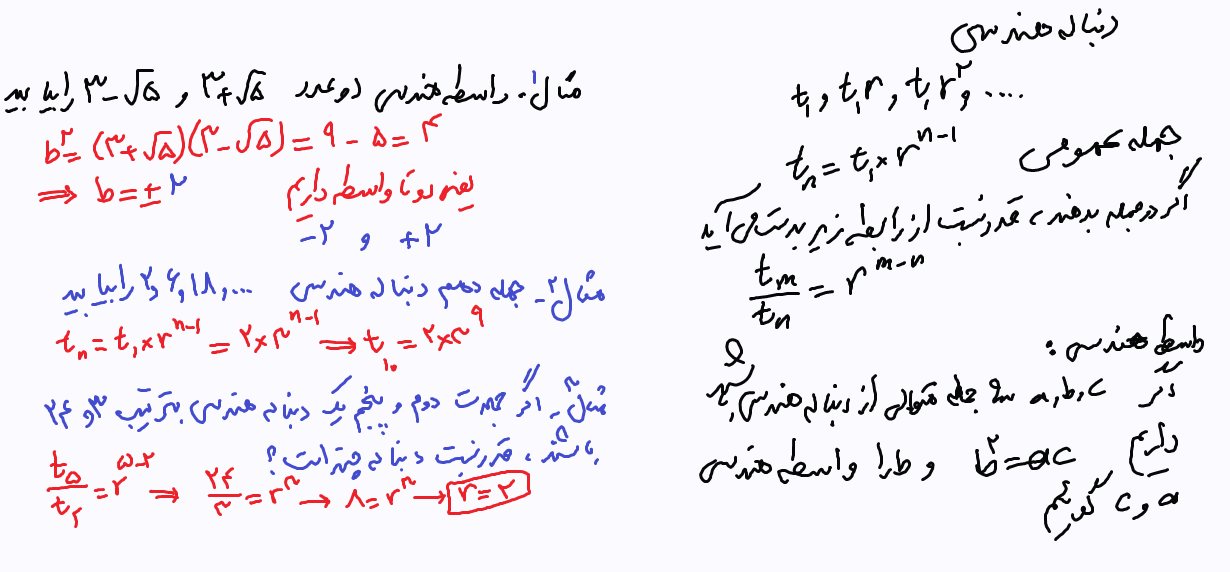 دنباله هندسی
t₁ , t₁r , t₁r² , ....
جمله عمومی tₙ = t₁ × rⁿ⁻¹
اگر دو جمله بدهند ، قدر نسبت از رابطه زیر بدست می آید
tₘ/tₙ = rᵐ⁻ⁿ
واسطه هندسی :
اگر a , b , c سه جمله متوالی از دنباله هندسی باشند
داریم b² = ac و b را واسطه هندسی
a و c گوییم
مثال ۱ـ واسطه هندسی دو عدد ۳+√۵ و ۳−√۵ را بیابید
b² = (۳+√۵)(۳−√۵) = ۹ − ۵ = ۴
⇒ b = ± ۲ یعنی دو تا واسطه داریم
−۲ و +۲
مثال ۲ـ جمله دهم دنباله هندسی ۲,۶,۱۸,... را بیابید
tₙ = t₁ × rⁿ⁻¹ = ۲ × ۳ⁿ⁻¹ ⇒ t₁₀ = ۲ × ۳⁹
مثال ۳ـ اگر جملات دوم و پنجم یک دنباله هندسی بترتیب ۳ و ۲۴
باشند ، قدر نسبت دنباله چقدر است ؟
t₅/t₂ = r⁵⁻² ⇒ ۲۴/۳ = r³ → ۸ = r³ → r = ۲